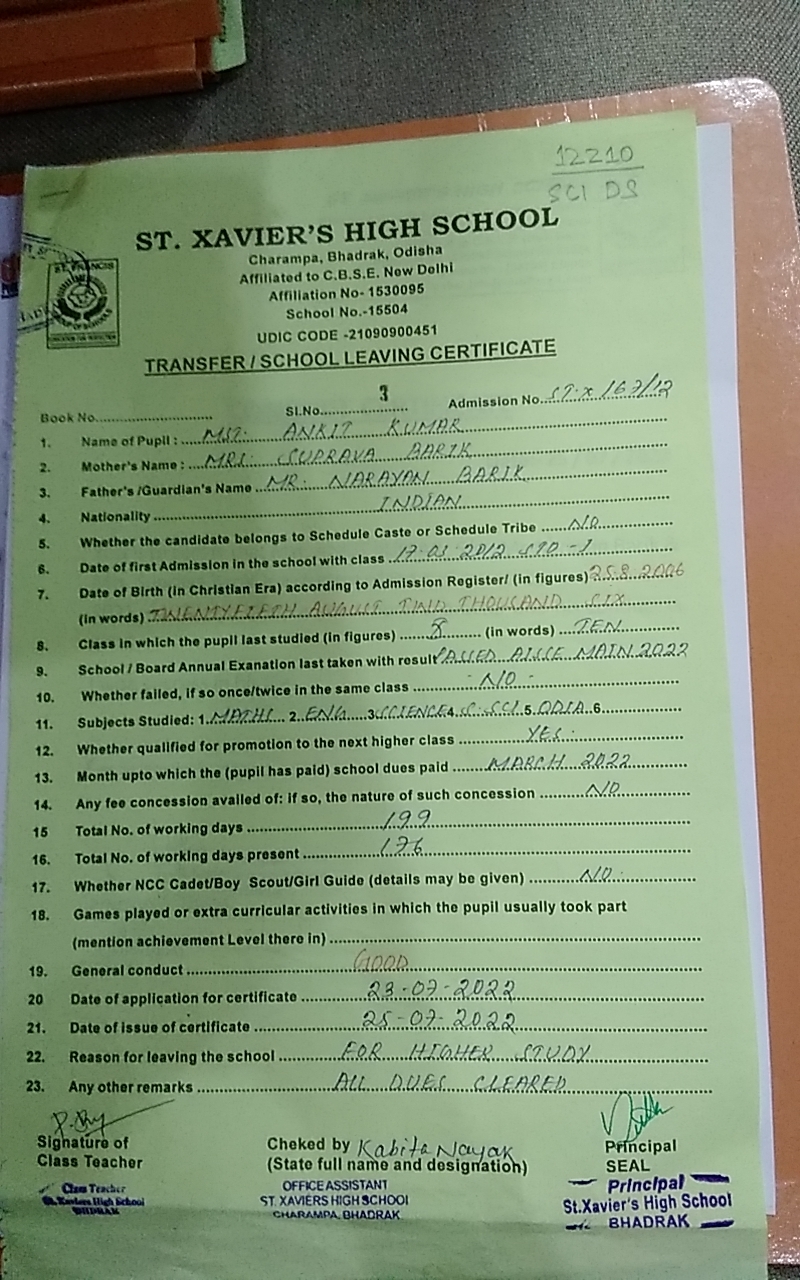 12210
SCI DS
ST. XAVIER'S HIGH SCHOOL
Charampa, Bhadrak, Odisha
Affiliated to C.B.S.E. New Delhi
Affiliation No- 1530095
School No.-15504
UDIC CODE -21090900451
ST. FRANCIS
GROUP OF SCHOOLS
TRANSFER / SCHOOL LEAVING CERTIFICATE
Book No. Sl.No. 3 Admission No. ST-X/167/12
1. Name of Pupil : MST. ANKIT KUMAR
2. Mother's Name : MRS. SUPRAVA BARIK
3. Father's /Guardian's Name MR. NARAYAN BARIK
4. Nationality INDIAN
5. Whether the candidate belongs to Schedule Caste or Schedule Tribe NO
6. Date of first Admission in the school with class 17.03.2012 STD - I
7. Date of Birth (in Christian Era) according to Admission Register/ (in figures) 25.8.2006
(in words) TWENTYFIFTH AUGUST TWO THOUSAND SIX
8. Class in which the pupil last studied (in figures) X (in words) TEN
9. School / Board Annual Exanation last taken with result PASSED AISSE MAIN 2022
10. Whether failed, if so once/twice in the same class - NO -
11. Subjects Studied: 1. MATHS 2. ENG 3. SCIENCE 4. S.SCI 5. ODIA 6.
12. Whether qualified for promotion to the next higher class YES.
13. Month upto which the (pupil has paid) school dues paid MARCH 2022
14. Any fee concession availed of: if so, the nature of such concession NO
15 Total No. of working days 199
16. Total No. of working days present 176
17. Whether NCC Cadet/Boy Scout/Girl Guide (details may be given) NO.
18. Games played or extra curricular activities in which the pupil usually took part
(mention achievement Level there in)
19. General conduct GOOD
20 Date of application for certificate 23-07-2022
21. Date of issue of certificate 25-07-2022
22. Reason for leaving the school FOR HIGHER STUDY
23. Any other remarks ALL DUES CLEARED
Signature of
Class Teacher
Class Teacher
St. Xaviers High School
BHADRAK
Cheked by Kabita Nayak
(State full name and designation)
OFFICE ASSISTANT
ST. XAVIERS HIGH SCHOOL
CHARAMPA, BHADRAK
Principal
SEAL
Principal
St.Xavier's High School
BHADRAK